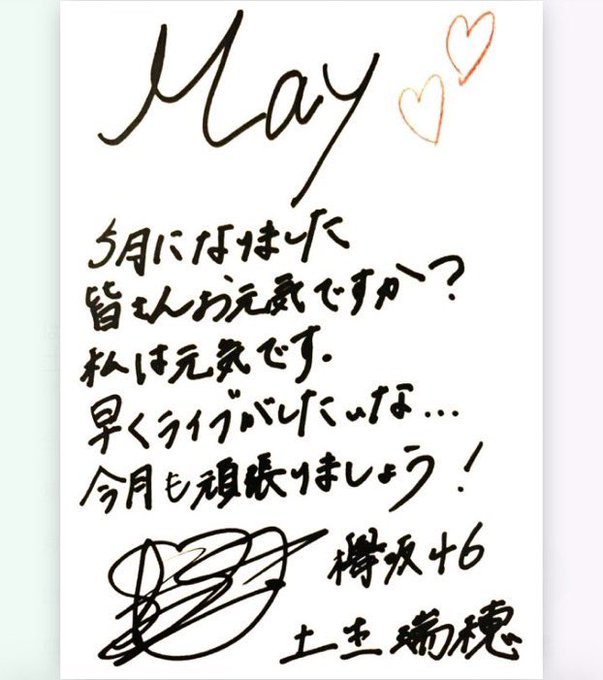 May
5月になりました
皆さんお元気ですか?
私は元気です.
早くライブがしたいな...
今月も頑張りましょう!
欅坂46
土生瑞穂